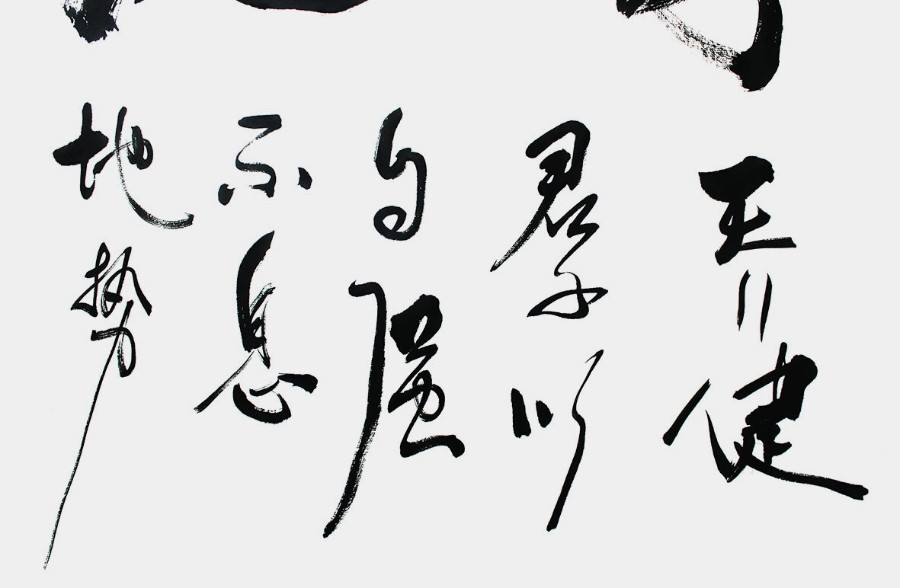 天行健
君子以
自强
不息
地势